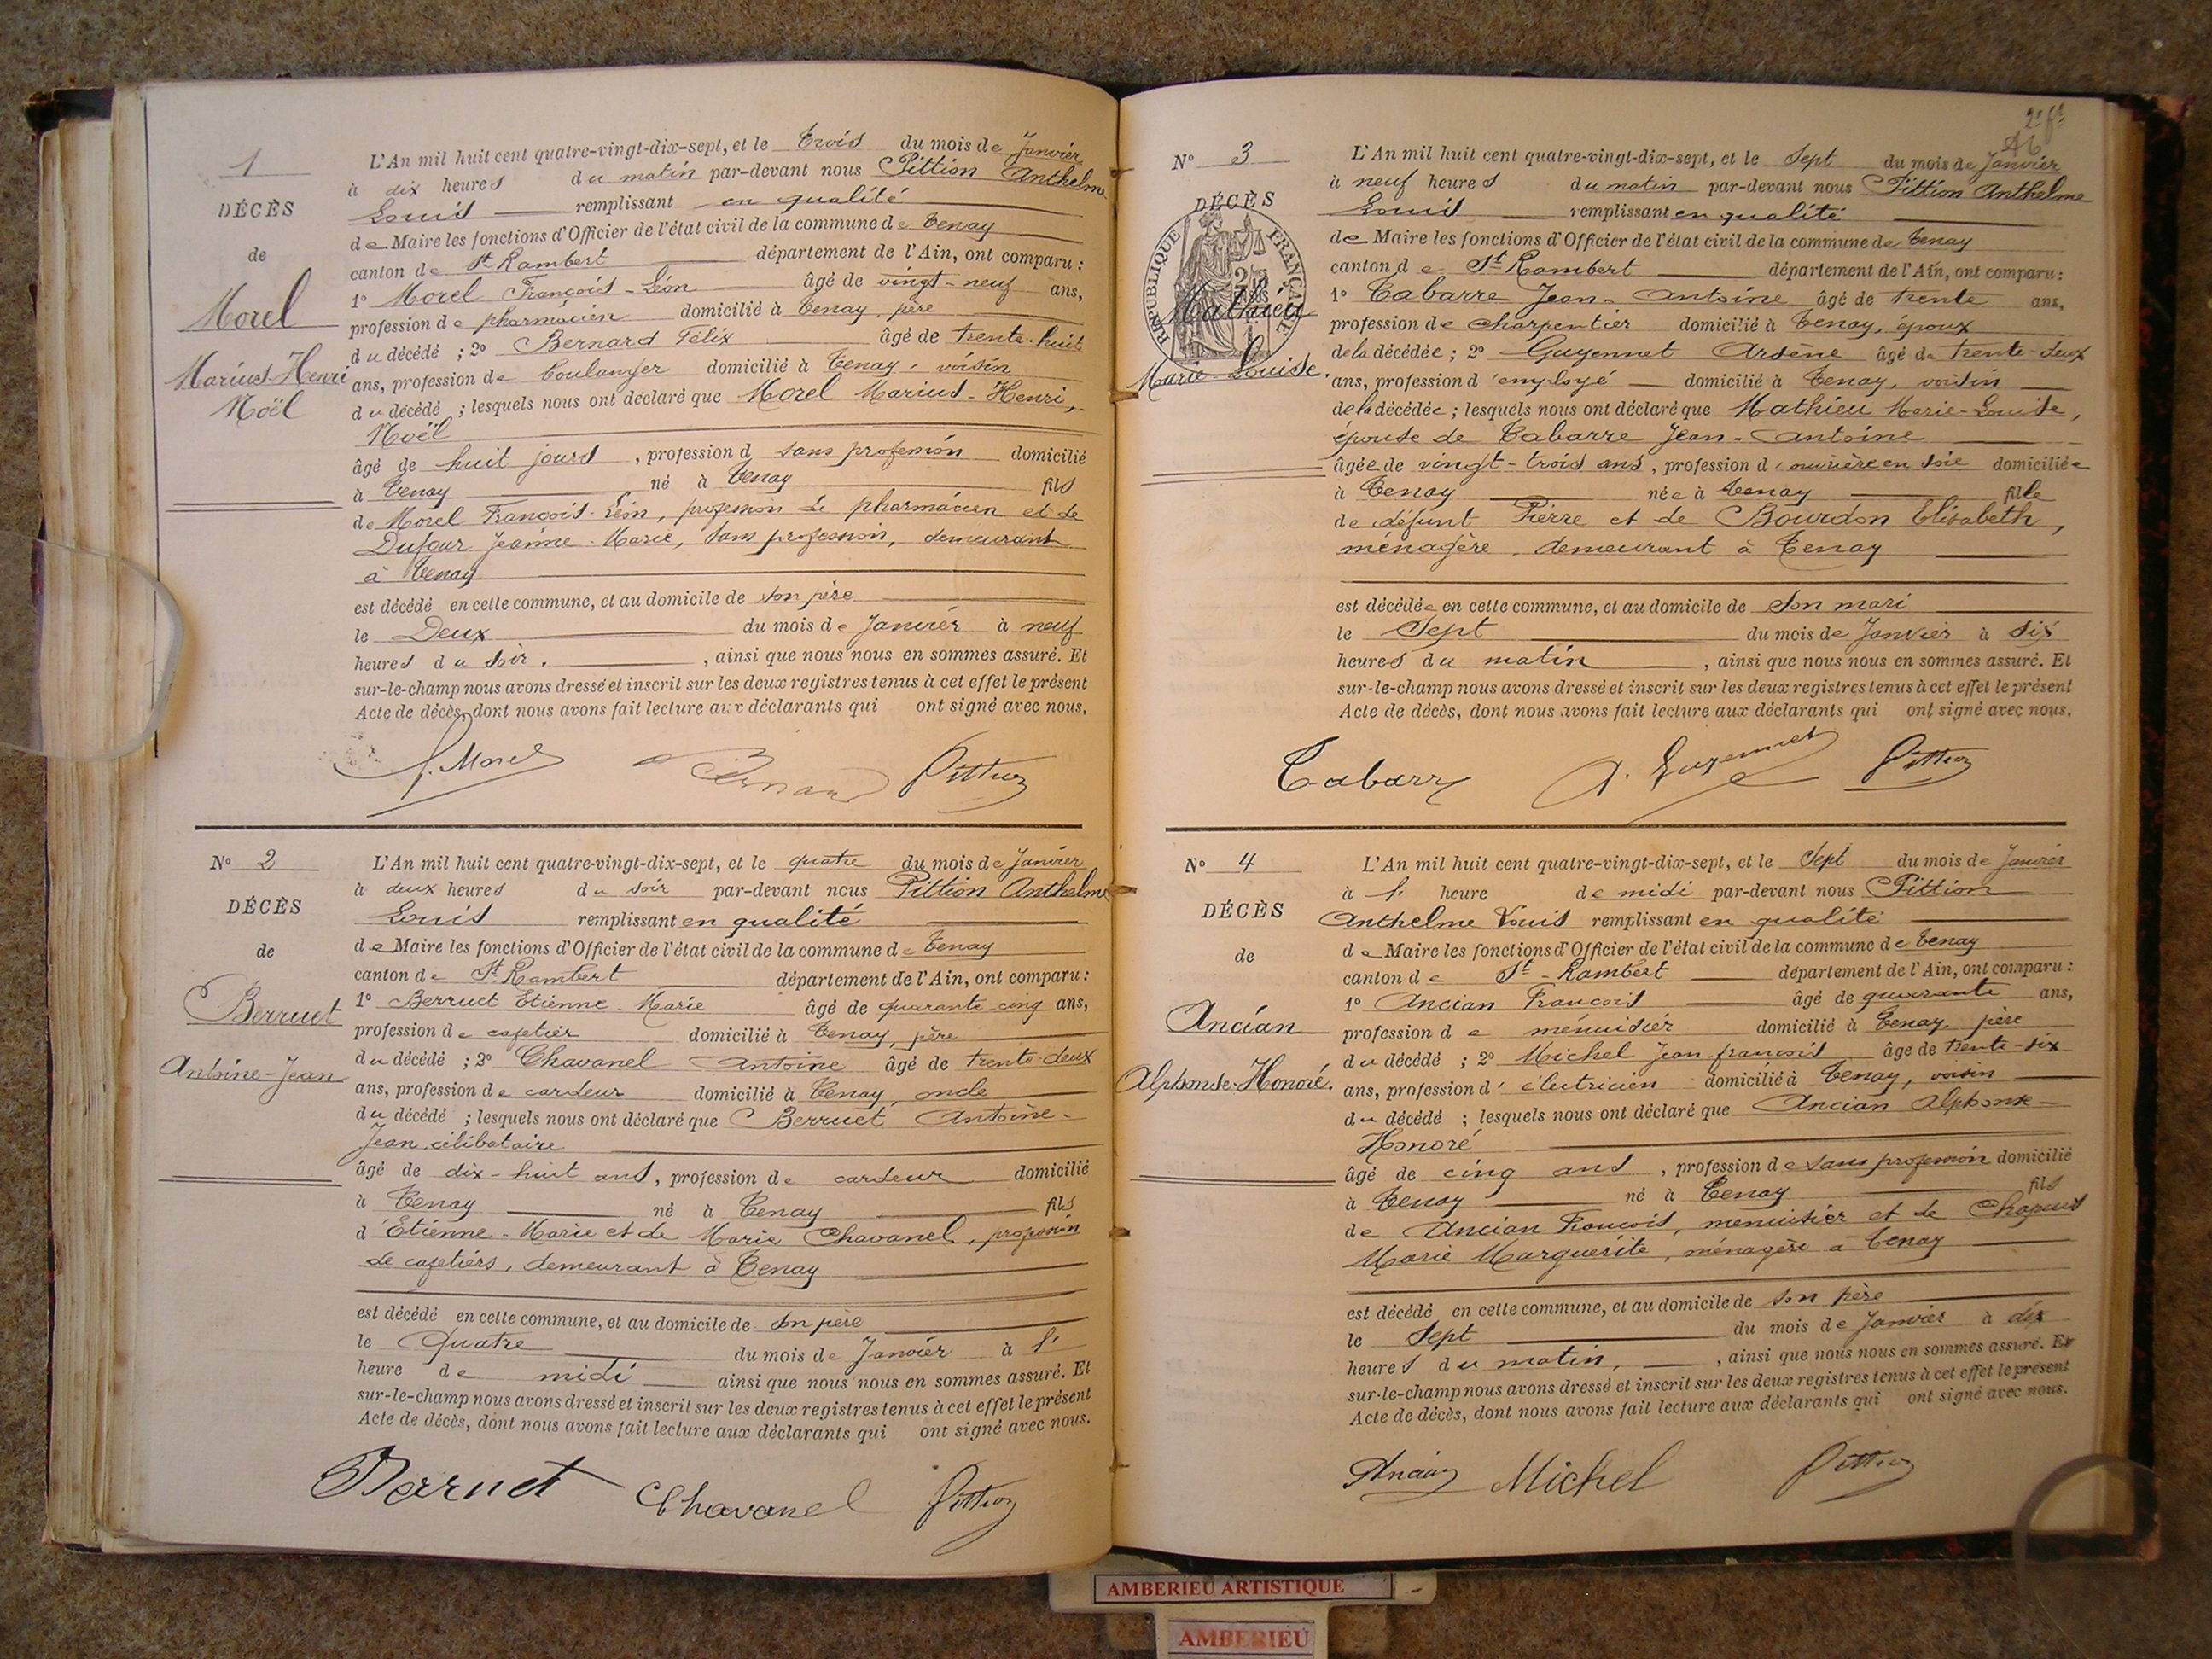 1
DÉCÈS
de
Morel
Marius-Henri
Noël
L'An mil huit cent quatre-vingt-dix-sept, et le trois du mois de Janvier
à dix heures du matin par-devant nous Pittion Anthelme
Louis remplissant en qualité
de Maire les fonctions d'Officier de l'état civil de la commune de Tenay
canton de St Rambert département de l'Ain, ont comparu :
1° Morel François-Léon âgé de vingt-neuf ans,
profession de pharmacien domicilié à Tenay, père
du décédé ; 2° Bernard Félix âgé de trente-huit
ans, profession de boulanger domicilié à Tenay, voisin
du décédé ; lesquels nous ont déclaré que Morel Marius-Henri,
Noël
âgé de huit jours, profession d sans profession domicilié
à Tenay né à Tenay fils
de Morel François-Léon, profession de pharmacien et de
Dufour Jeanne-Marie, sans profession, demeurant
à Tenay
est décédé en cette commune, et au domicile de son père
le Deux du mois de Janvier à neuf
heures du soir. , ainsi que nous nous en sommes assuré. Et
sur-le-champ nous avons dressé et inscrit sur les deux registres tenus à cet effet le présent
Acte de décès, dont nous avons fait lecture aux déclarants qui ont signé avec nous.
f. Morel Bernard Pittion
N° 2
DÉCÈS
de
Berruet
Antoine-Jean
L'An mil huit cent quatre-vingt-dix-sept, et le quatre du mois de Janvier
à deux heures du soir par-devant nous Pittion Anthelme
Louis remplissant en qualité
de Maire les fonctions d'Officier de l'état civil de la commune de Tenay
canton de St Rambert département de l'Ain, ont comparu :
1° Berruet Etienne-Marie âgé de quarante-cinq ans,
profession de cafetier domicilié à Tenay, père
du décédé ; 2° Chavanel Antoine âgé de trente-deux
ans, profession de cardeur domicilié à Tenay, oncle
du décédé ; lesquels nous ont déclaré que Berruet Antoine-
Jean, célibataire
âgé de dix-huit ans, profession de cardeur domicilié
à Tenay né à Tenay fils
d'Etienne-Marie et de Marie Chavanel, profession
de cafetiers, demeurant à Tenay
est décédé en cette commune, et au domicile de son père
le Quatre du mois de Janvier à 1'
heure de midi ainsi que nous nous en sommes assuré. Et
sur-le-champ nous avons dressé et inscrit sur les deux registres tenus à cet effet le présent
Acte de décès, dont nous avons fait lecture aux déclarants qui ont signé avec nous.
Berruet Chavanel Pittion
N° 3
DÉCÈS
RÉPUBLIQUE FRANÇAISE
Mathieu
Marie-Louise.
L'An mil huit cent quatre-vingt-dix-sept, et le sept du mois de Janvier
à neuf heures du matin par-devant nous Pittion Anthelme
Louis remplissant en qualité
de Maire les fonctions d'Officier de l'état civil de la commune de Tenay
canton de St Rambert département de l'Ain, ont comparu :
1° Cabarre Jean-Antoine âgé de trente ans,
profession de charpentier domicilié à Tenay, époux
de la décédée ; 2° Guyennet Arsène âgé de trente-deux
ans, profession d'employé domicilié à Tenay, voisin
de la décédée ; lesquels nous ont déclaré que Mathieu Marie-Louise,
épouse de Cabarre Jean-Antoine
âgée de vingt-trois ans, profession d'ouvrière en soie domiciliée
à Tenay née à Tenay fille
de défunt Pierre et de Bourdon Elisabeth,
ménagère, demeurant à Tenay
est décédée en cette commune, et au domicile de son mari
le Sept du mois de Janvier à six
heures du matin , ainsi que nous nous en sommes assuré. Et
sur-le-champ nous avons dressé et inscrit sur les deux registres tenus à cet effet le présent
Acte de décès, dont nous avons fait lecture aux déclarants qui ont signé avec nous.
Cabarre A. Guyennet Pittion
N° 4
DÉCÈS
de
Ancian
Alphonse-Honoré.
L'An mil huit cent quatre-vingt-dix-sept, et le Sept du mois de Janvier
à 1' heure de midi par-devant nous Pittion
Anthelme Louis remplissant en qualité
de Maire les fonctions d'Officier de l'état civil de la commune de Tenay
canton de St-Rambert département de l'Ain, ont comparu :
1° Ancian François âgé de quarante ans,
profession de menuisier domicilié à Tenay, père
du décédé ; 2° Michel Jean françois âgé de trente-six
ans, profession d'électricien domicilié à Tenay, voisin
du décédé ; lesquels nous ont déclaré que Ancian Alphonse-
Honoré
âgé de cinq ans, profession de sans profession domicilié
à Tenay né à Tenay fils
de Ancian François, menuisier et de Chapuis
Marie Marguerite, ménagère à Tenay
est décédé en cette commune, et au domicile de son père
le Sept du mois de Janvier à dix
heures du matin, , ainsi que nous nous en sommes assuré. Et
sur-le-champ nous avons dressé et inscrit sur les deux registres tenus à cet effet le présent
Acte de décès, dont nous avons fait lecture aux déclarants qui ont signé avec nous.
Ancian Michel Pittion
AMBERIEU ARTISTIQUE
AMBERIEU